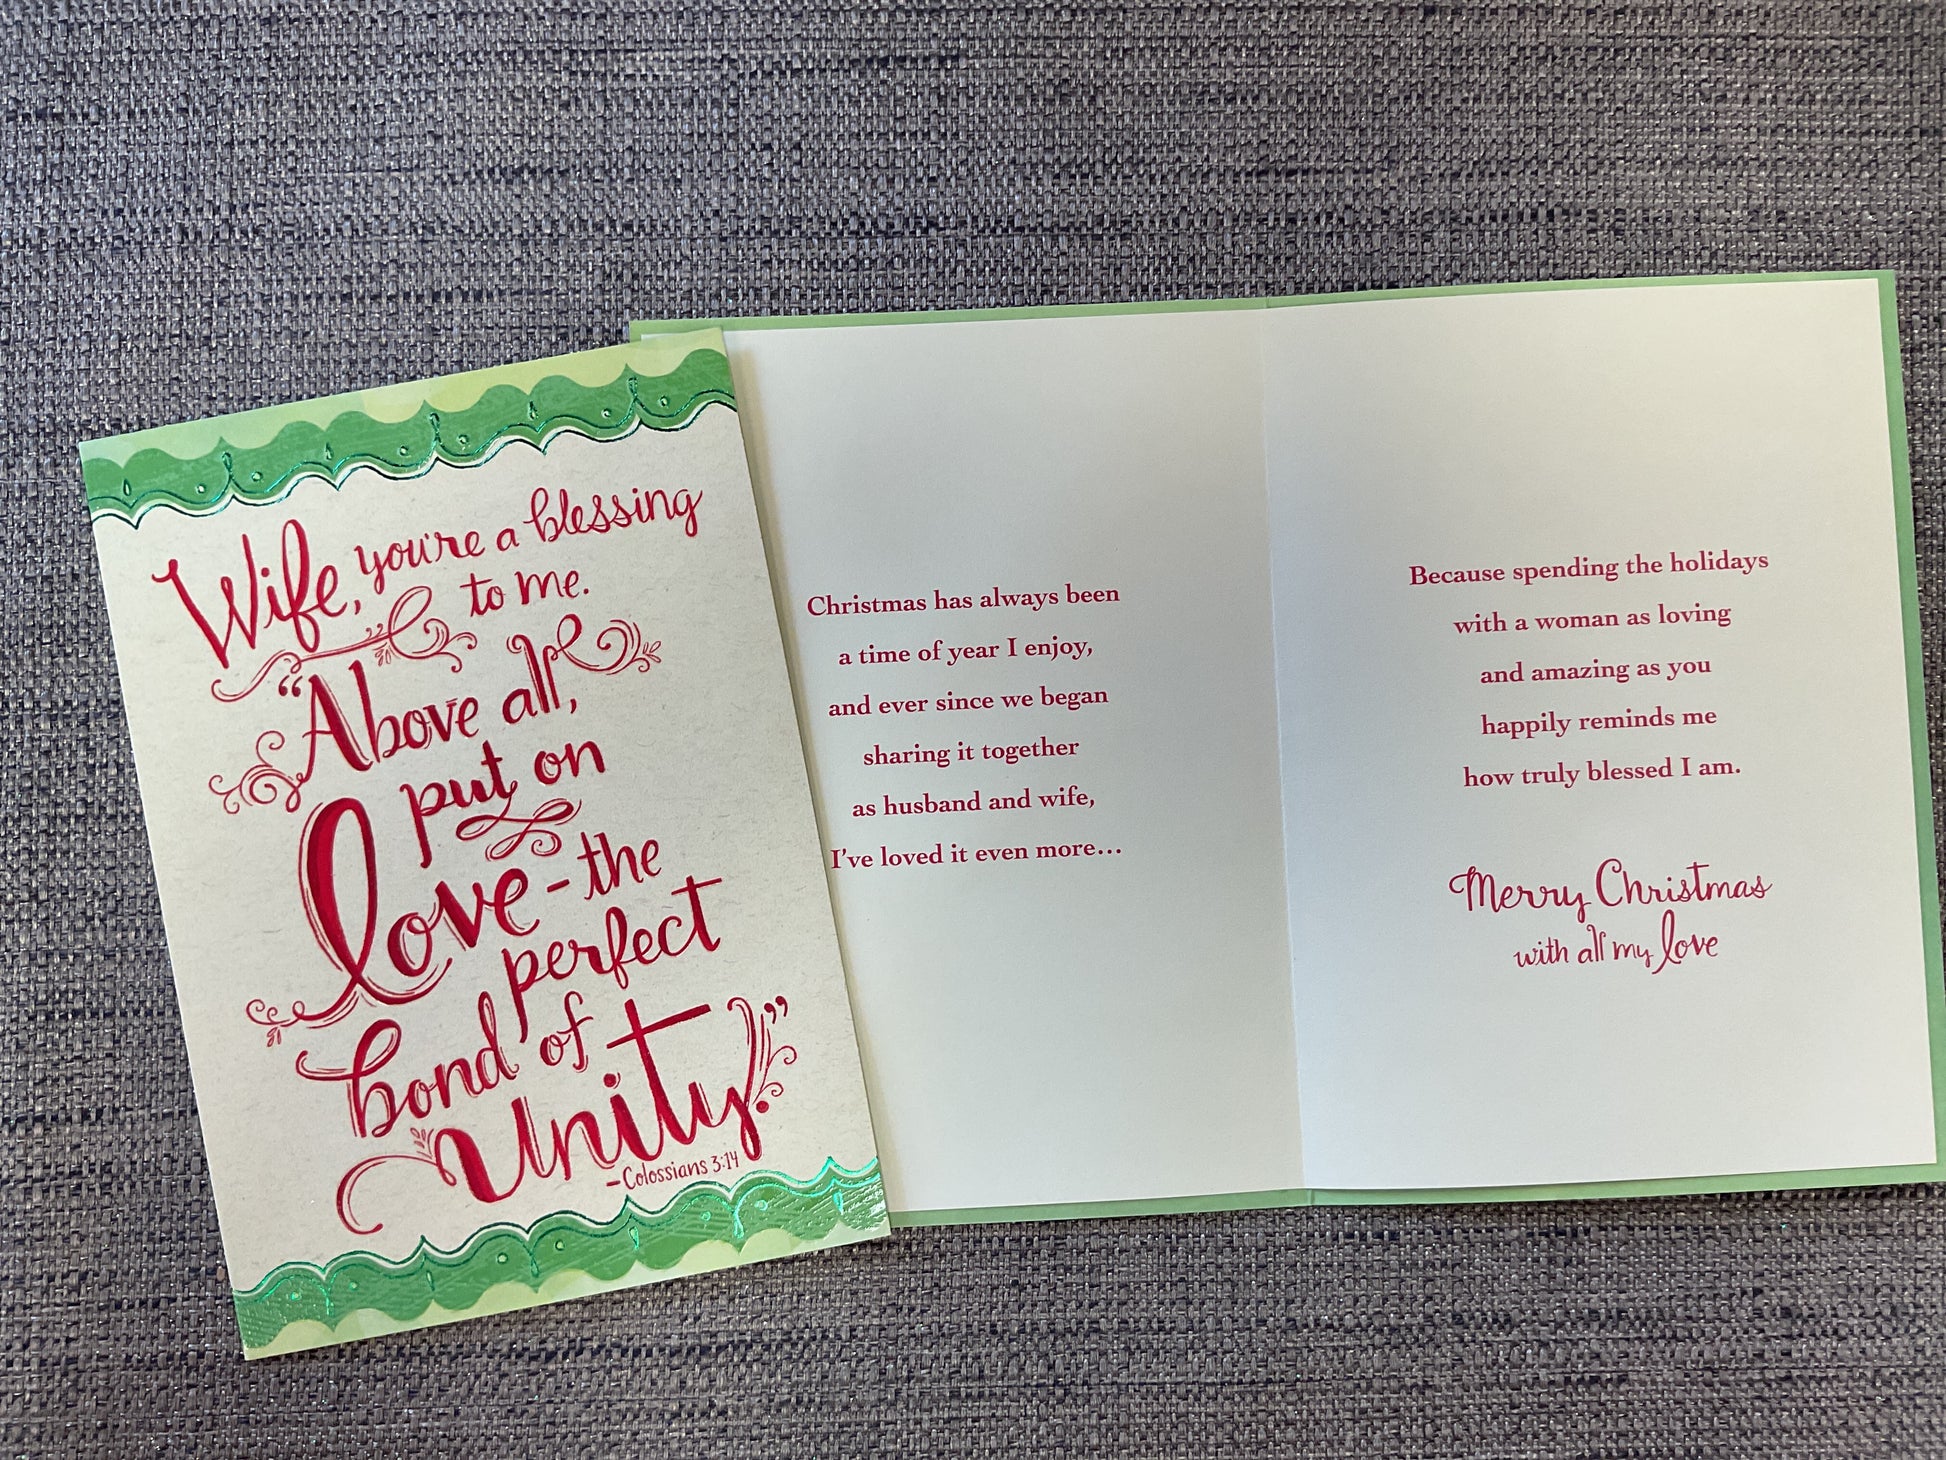 Wife, you're a blessing
to me.
"Above all,
put on
love-the
perfect
bond of
Unity."
-Colossians 3:14
Christmas has always been
a time of year I enjoy,
and ever since we began
sharing it together
as husband and wife,
I've loved it even more...
Because spending the holidays
with a woman as loving
and amazing as you
happily reminds me
how truly blessed I am.
Merry Christmas
with all my love